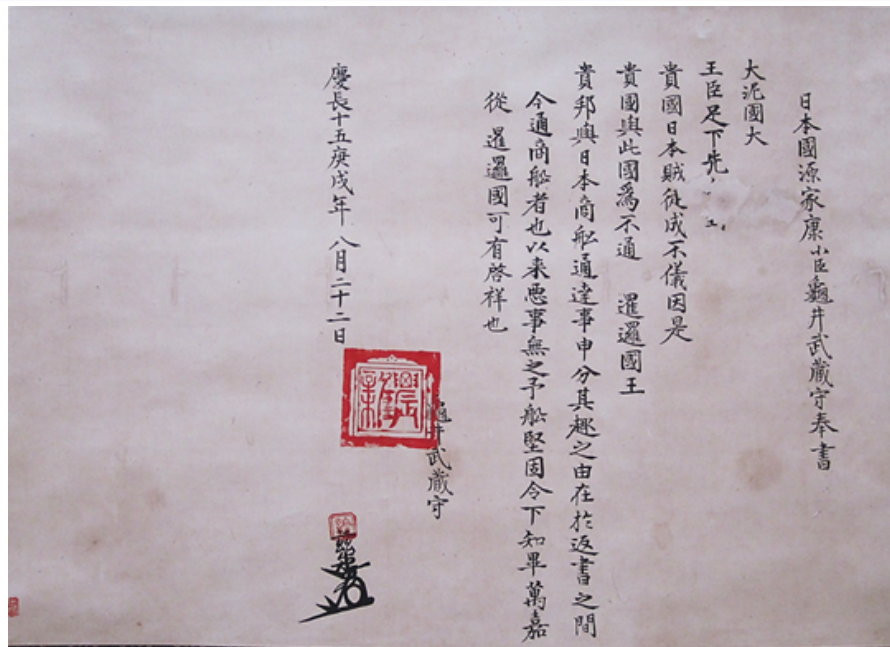 日本國源家康小臣龜井武藏守奉書
大泥國大
王臣足下先
貴國日本賊徒成不儀因是
貴國與此國為不通 暹邏國王
貴邦與日本商舩通達事申分其趣之由在於返書之間
今通商舩者也以来悪事無之予舩堅固令下知畢萬嘉
從 暹邏國可有啓祥也
慶長十五庚戌年 八月二十二日
龜井武藏守